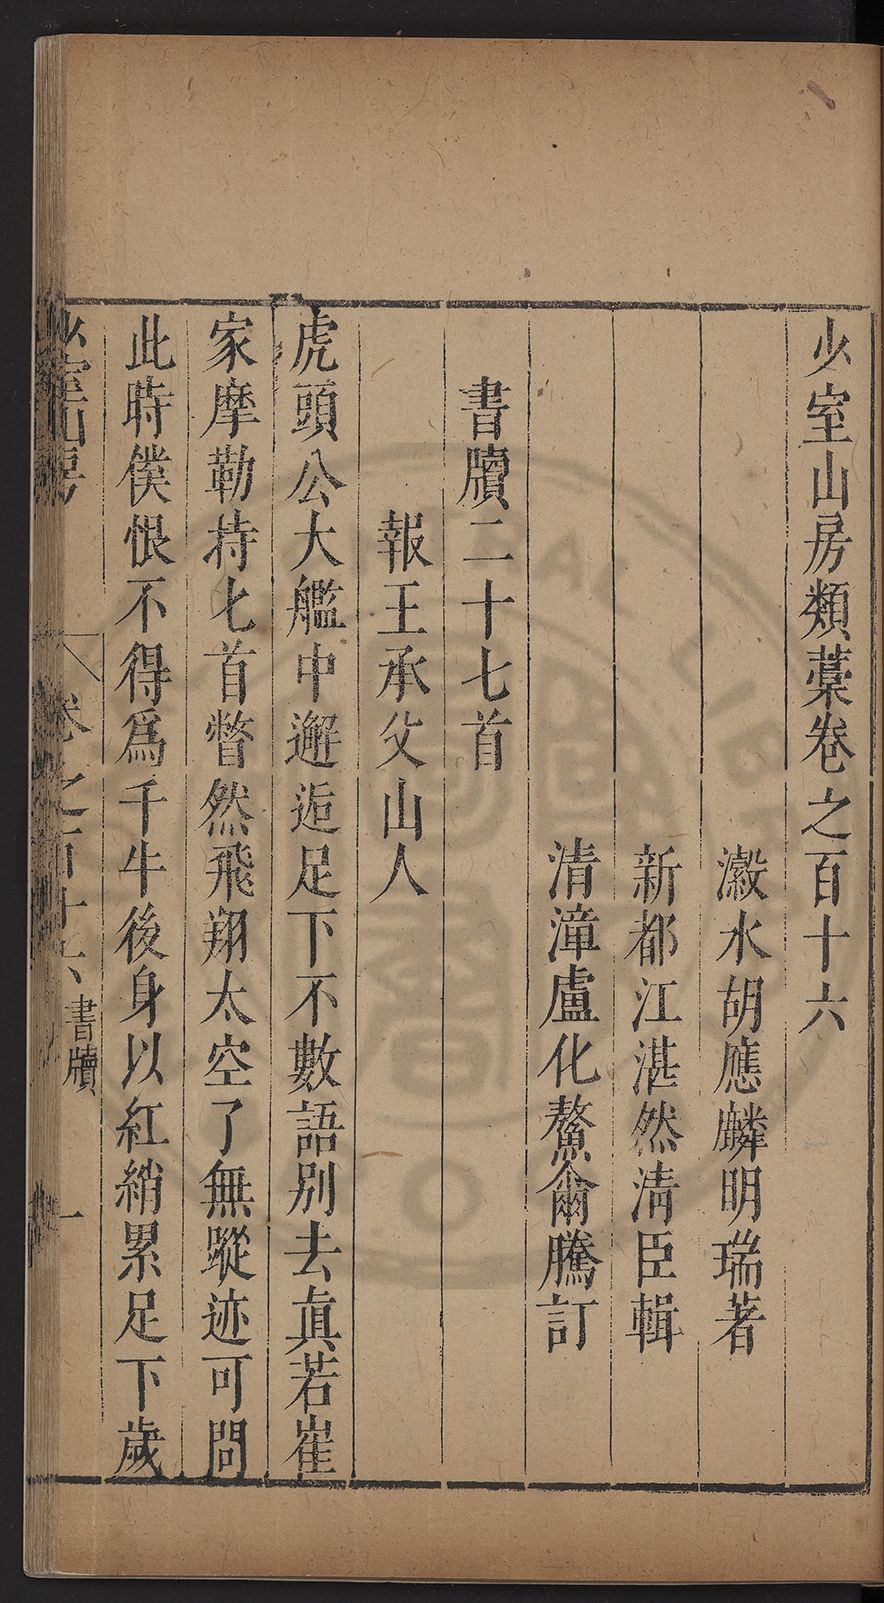 少室山房類藁卷之百十六
瀫水胡應麟明瑞著
新都江湛然清臣輯
清漳盧化鰲爾騰訂
書牘二十七首
報王承父山人
虎頭公大艦中邂逅足下不數語別去真若崔
家摩勒持匕首瞥然飛翔太空了無蹤迹可問
此時僕恨不得爲千牛後身以紅綃累足下歲
少室山房
卷之百十六
書牘
一